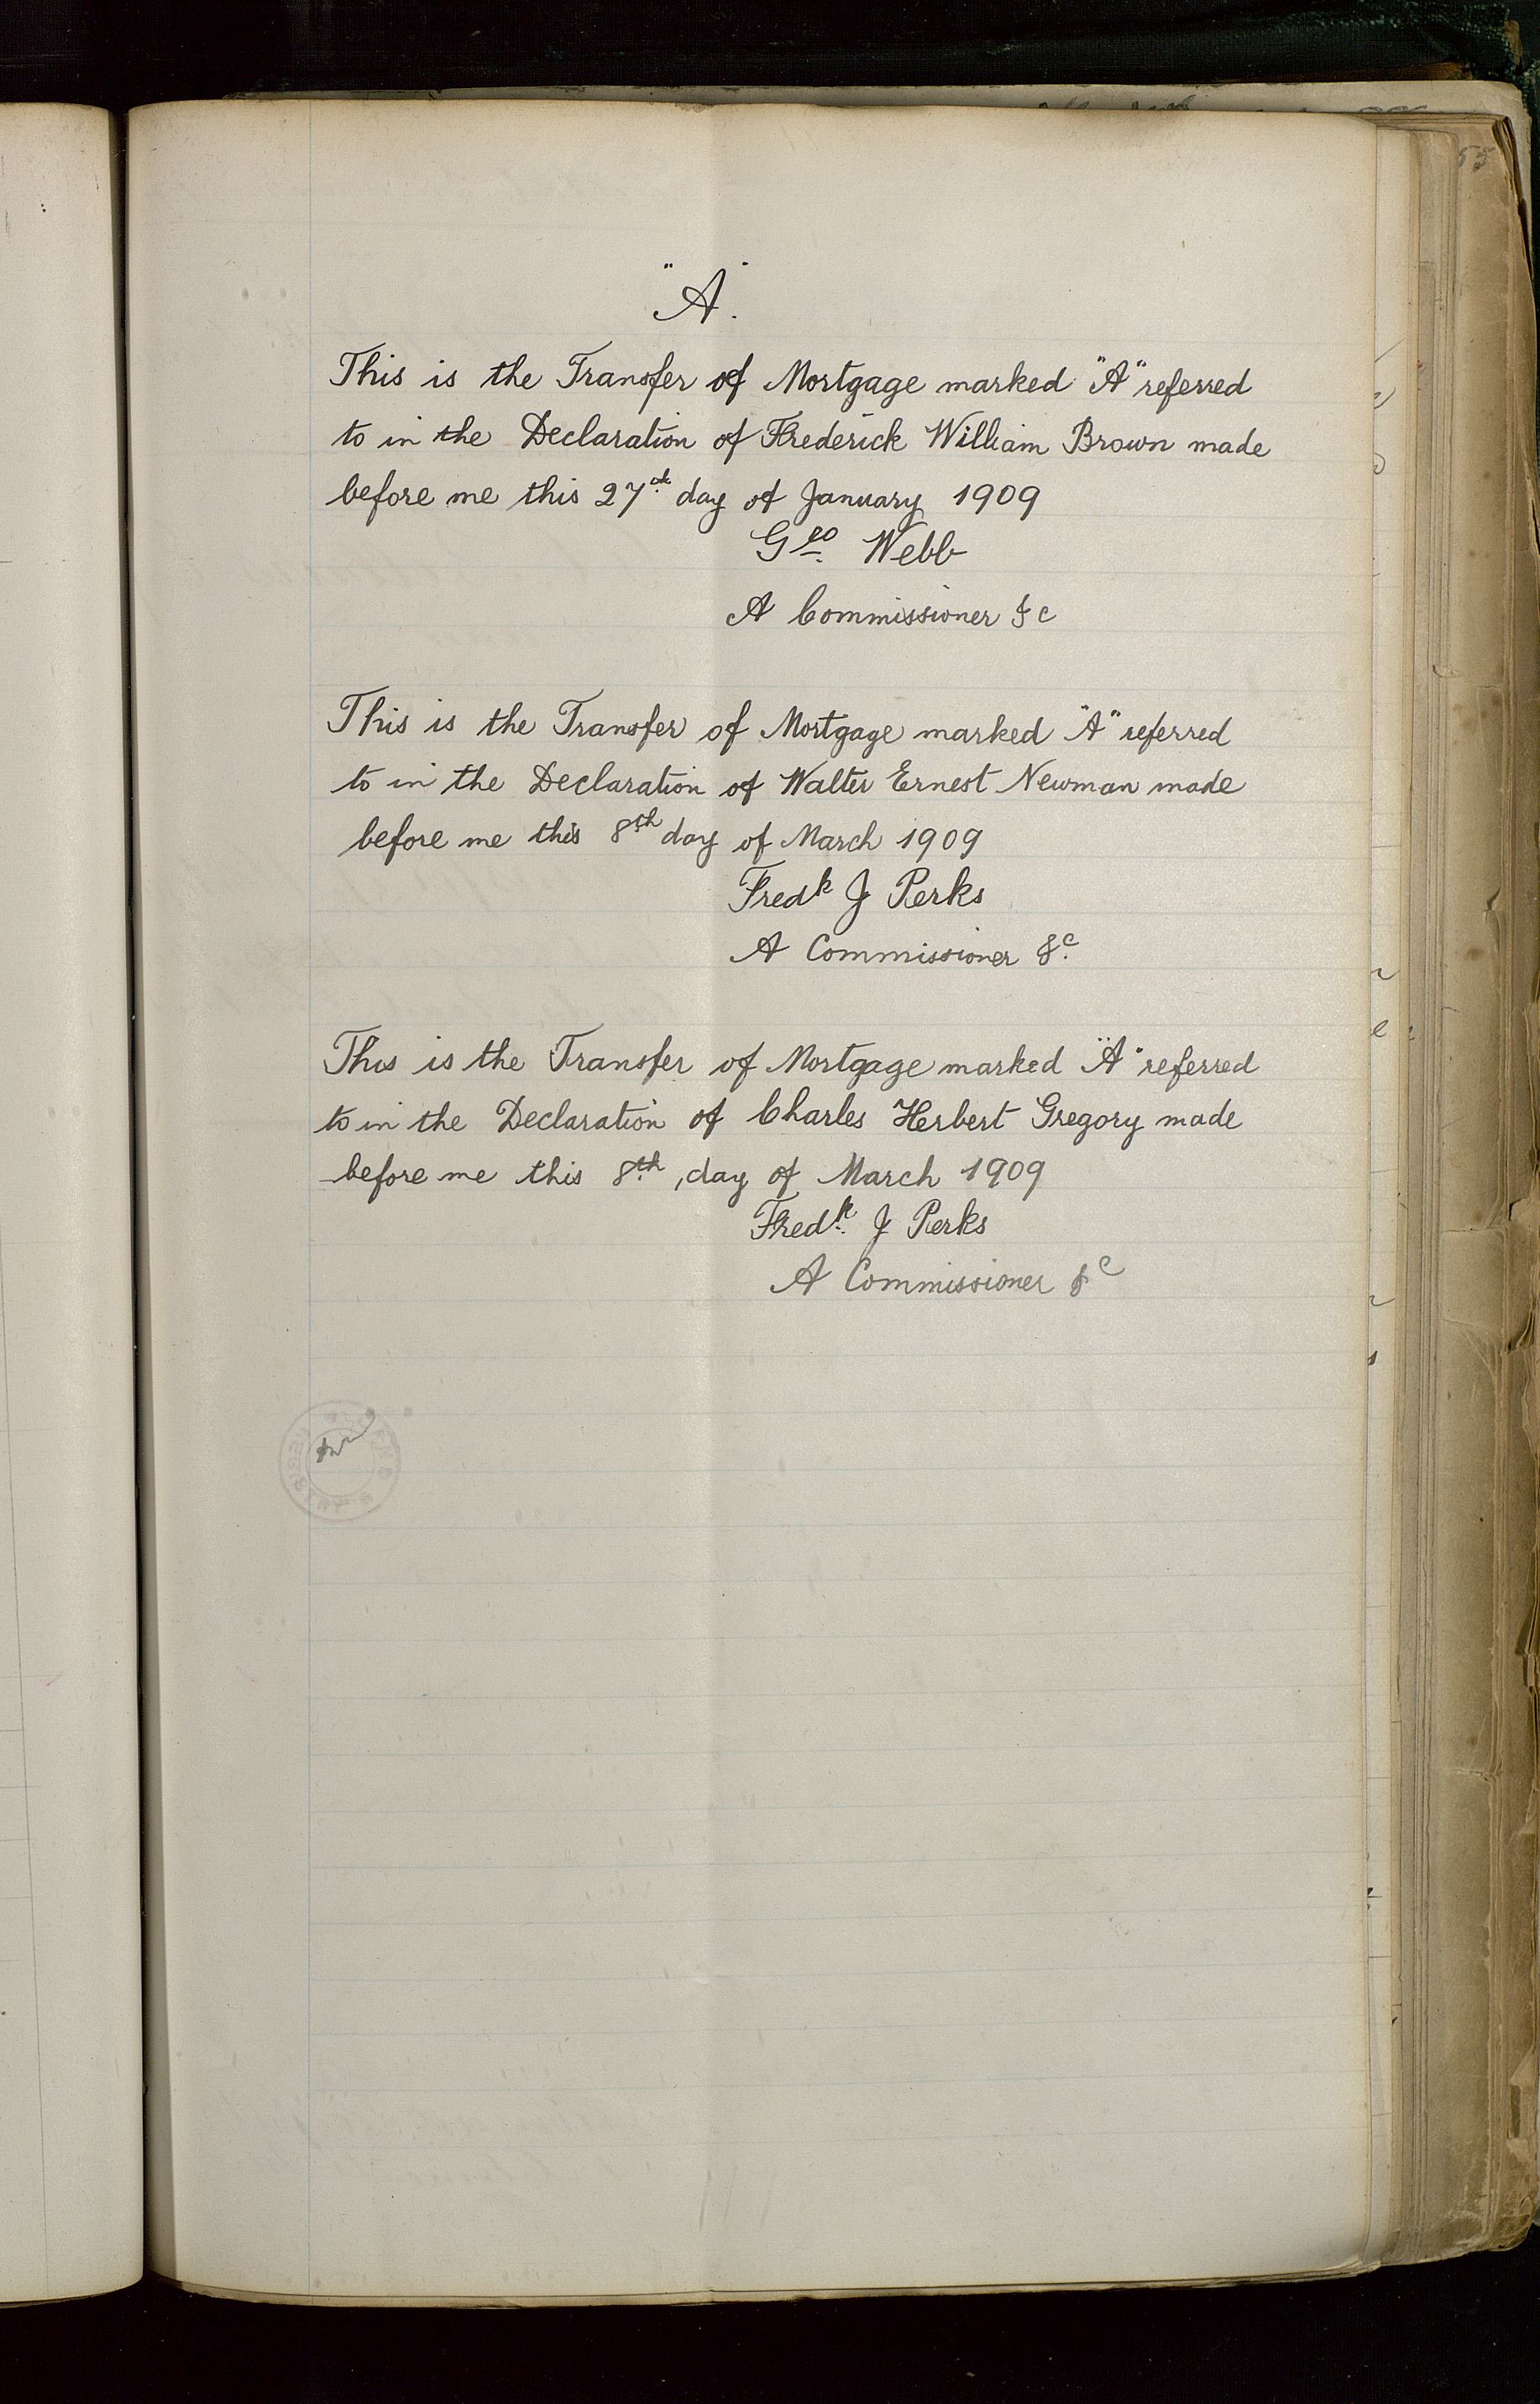 "A".
This is the Transfer of Mortgage marked "A" referred
to in the Declaration of Frederick William Brown made
before me this 27th day of January 1909
Geo. Webb
A Commissioner &c
This is the Transfer of Mortgage marked "A" referred
to in the Declaration of Walter Ernest Newman made
before me this 8th day of March 1909
Fredk J Perks
A Commissioner &c.
This is the Transfer of Mortgage marked "A" referred
to in the Declaration of Charles Herbert Gregory made
before me this 8th, day of March 1909
Fredk. J Perks
A Commissioner &c